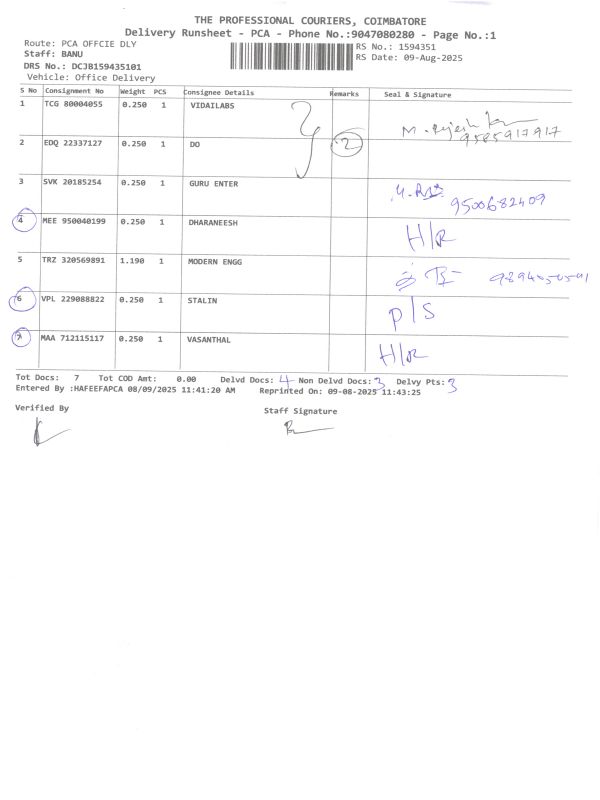 THE PROFESSIONAL COURIERS, COIMBATORE
Delivery Runsheet - PCA - Phone No.:9047080280 - Page No.:1
Route: PCA OFFCIE DLY
RS No.: 1594351
Staff: BANU
RS Date: 09-Aug-2025
DRS No.: DCJB159435101
Vehicle: Office Delivery
S No Consignment No Weight PCS Consignee Details Remarks Seal & Signature
1 TCG 80004055 0.250 1 VIDAILABS
9585917917
2 EDQ 22337127 0.250 1 DO 2
3 SVK 20185254 0.250 1 GURU ENTER
9500682409
4 MEE 950040199 0.250 1 DHARANEESH H/R
5 TRZ 320569891 1.190 1 MODERN ENGG
6 VPL 229088822 0.250 1 STALIN P/S
7 MAA 712115117 0.250 1 VASANTHAL H/R
Tot Docs: 7 Tot COD Amt: 0.00 Delvd Docs: 4 Non Delvd Docs: 3 Delvy Pts: 3
Entered By :HAFEEFAPCA 08/09/2025 11:41:20 AM Reprinted On: 09-08-2025 11:43:25
Verified By
Staff Signature